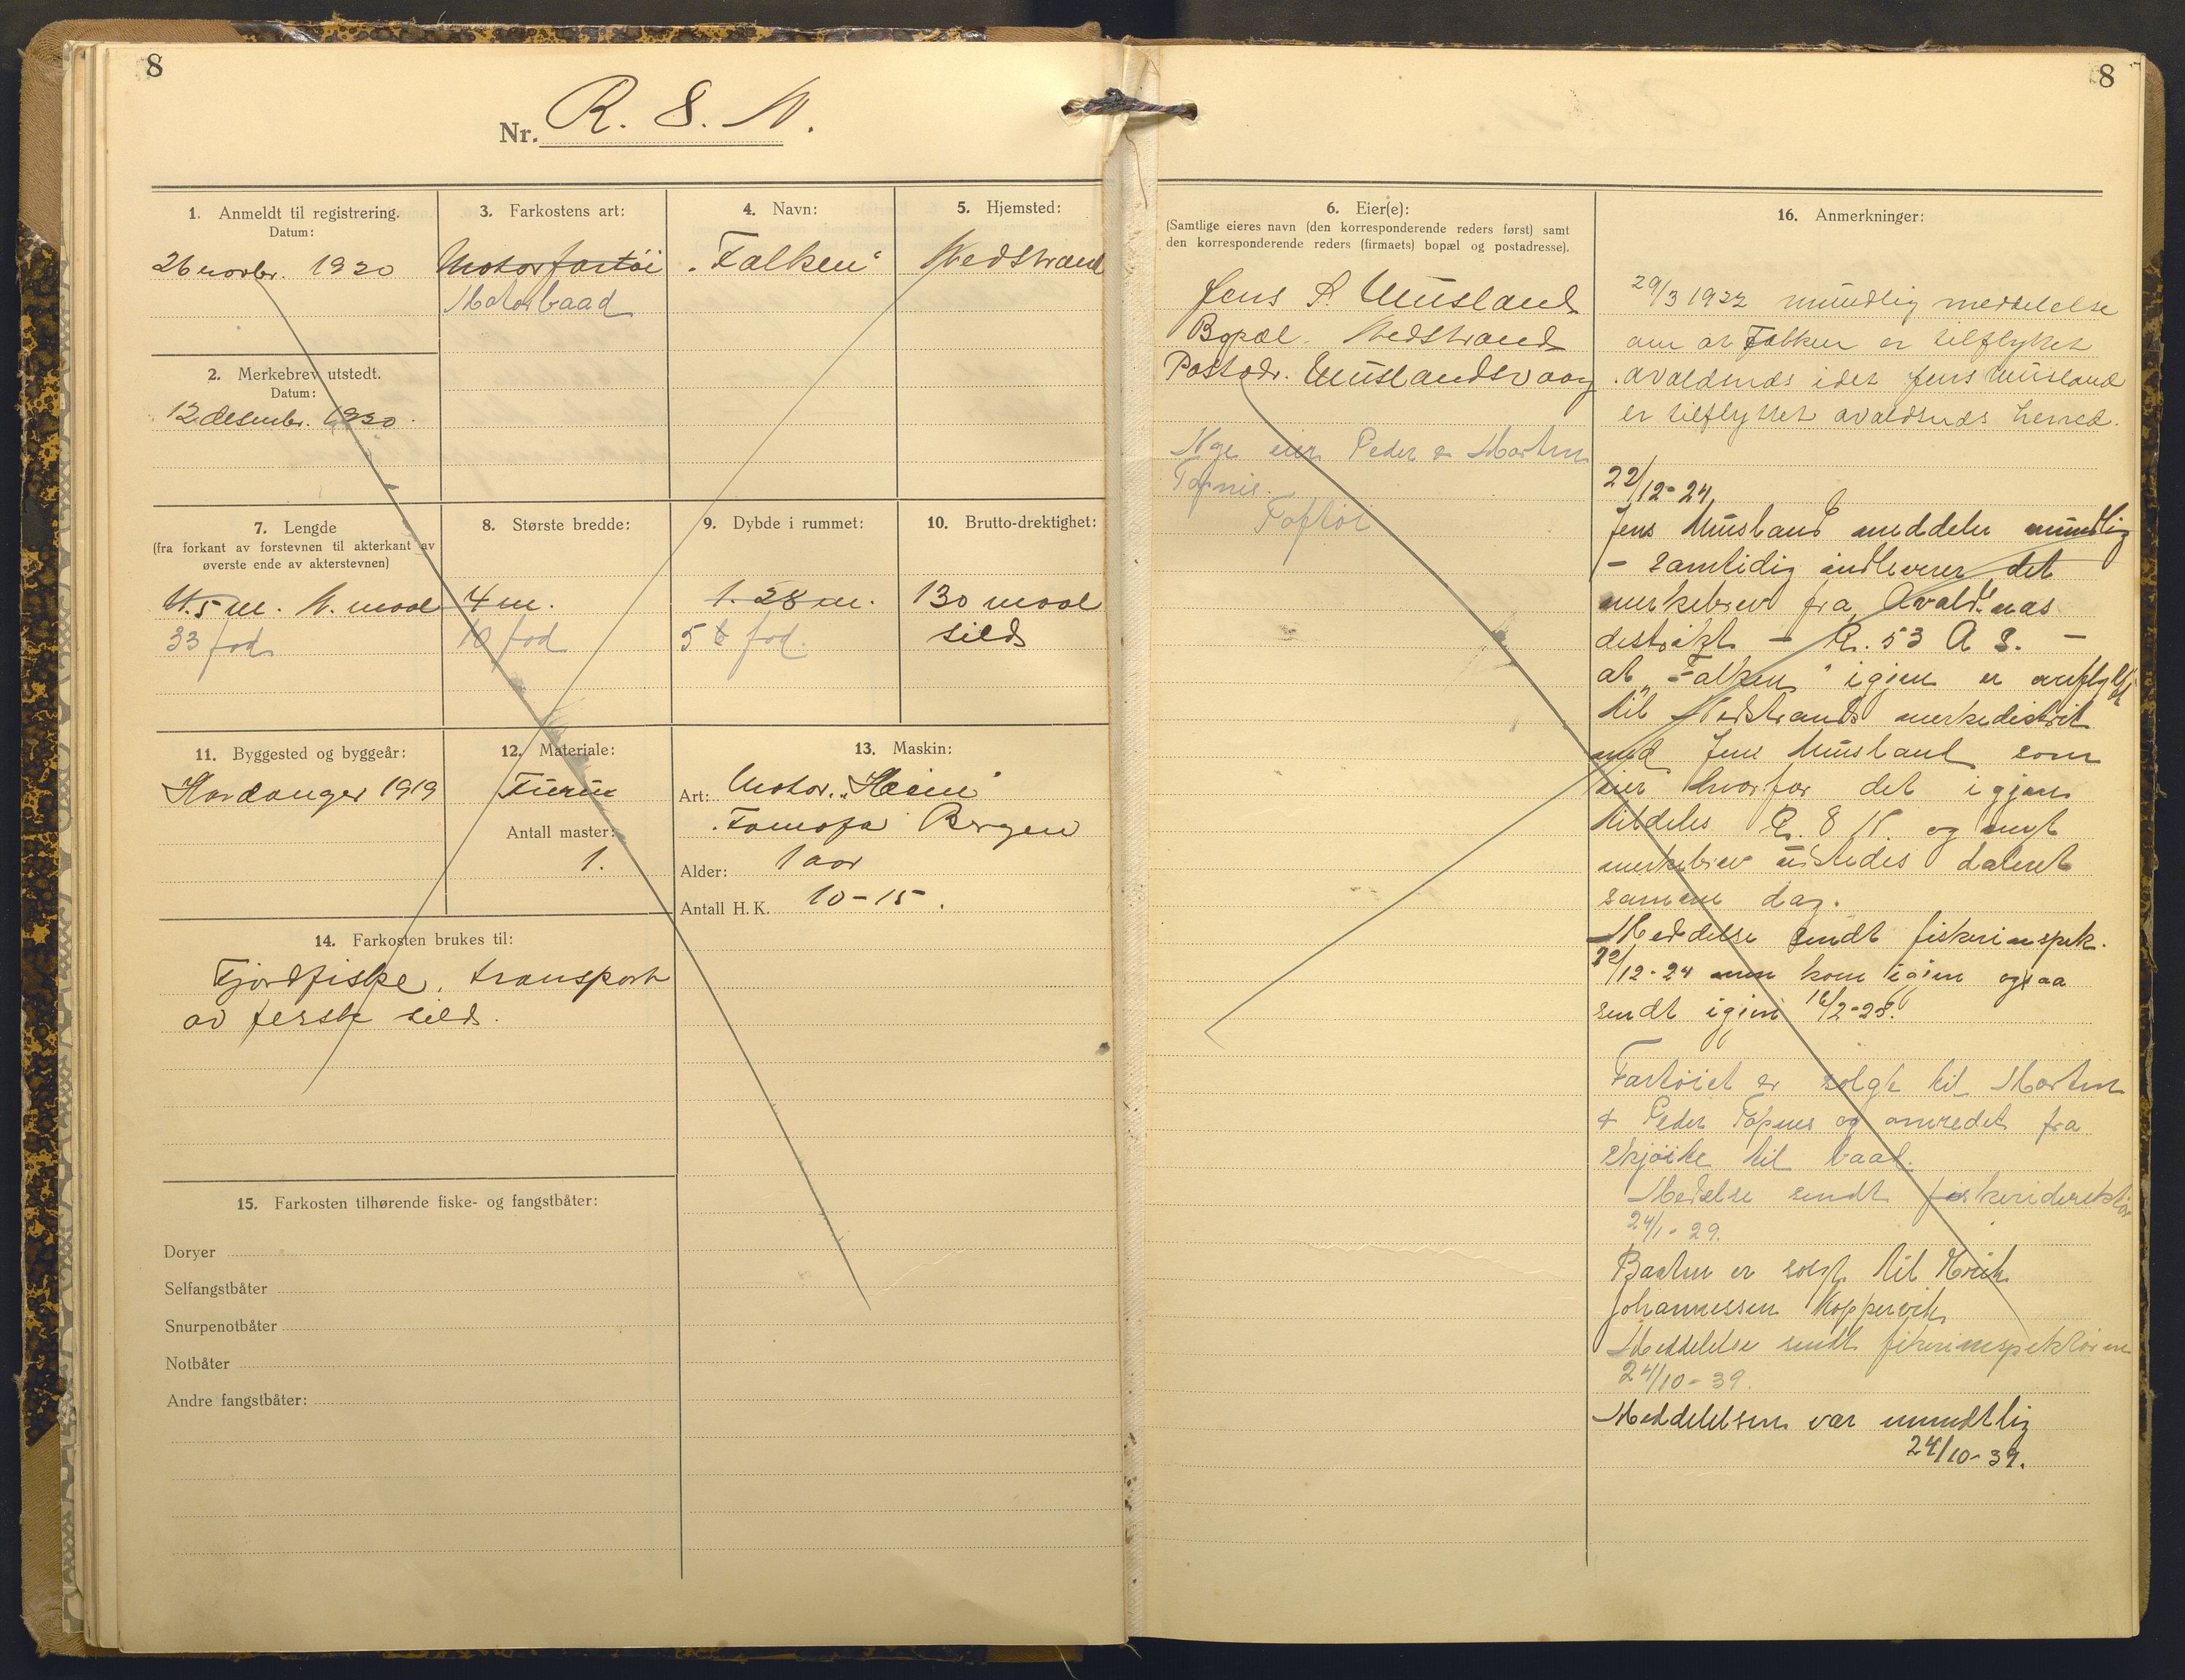 8
Nr. R. 8. N.
1. Anmeldt til registrering.
Datum:
26 novbr. 1920
2. Merkebrev utstedt.
Datum:
12 desembr. 1920.
3. Farkostens art:
Motorfartøi
Motorbaad
4. Navn:
"Falken"
5. Hjemsted:
Nedstrand
7. Lengde
(fra forkant av forstevnen til akterkant av
øverste ende av akterstevnen)
11.5 m.
33 fod
8. Største bredde:
4 m.
10 fod
9. Dybde i rummet:
1.28 m.
5 fod.
10. Brutto-drektighet:
130 maal
sild
11. Byggested og byggeår:
Hardanger 1919
12. Materiale:
Furu
Antall master:
1.
13. Maskin:
Art: Motor. "Hein"
Bergen
Alder: 1 aar
Antall H.K. 10-15.
14. Farkosten brukes til:
Fjordfiske, transport
av fersk sild.
15. Farkosten tilhørende fiske- og fangstbåter:
Doryer
Selfangstbåter
Snurpenotbåter
Notbåter
Andre fangstbåter:
8
6. Eier(e):
(Samtlige eieres navn (den korresponderende reders først) samt
den korresponderende reders (firmaets) bopæl og postadresse).
Jens S. Musland
Bopæl. Nedstrand
Postadr. Muslandsvaag
Nye eier Peder & Martin
Toftøi
16. Anmerkninger:
29/3 1922 mundlig meddelelse
om at Falken er tilflyttet
Avaldsnæs idet Jens Musland
er tilflyttet Avaldsnæs herred.
22/12-24,
Jens Musland meddeler mundlig
- samtidig indleverer det
merkebrev fra Avaldsnæs
distrikt - R. 53 A S. -
at "Falken" igjen er overflyttet
til Nedstrands merkedistrikt
med Jens Musland som
eier hvorfor det igjen
tildeles R. 8 N. og nyt
merkebrev utstedes dateret
samme dag.
Meddelse sendt fiskeriinspek.
22/12-24 men kom igjen ogsaa
sendt igjen 16/2-25.
Fartøiet er solgt til Martin
& Peder Topnes og omredet fra
skjøite til baat.
Medelse sendt fiskeridirektør
24/1-29.
Baaten er solgt til
Johannessen Koppervik
Meddelelse sendt fiskeriinspektøren
24/10-39.
Meddelelsen var mundtlig
24/10-39.